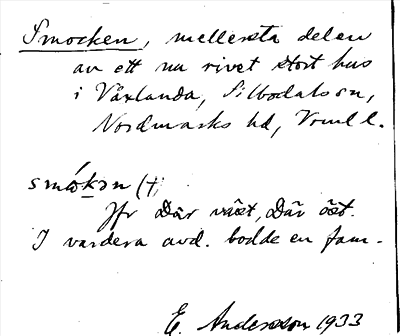 Smocken, mellersta delen
av ett nu rivet stort hus
i Växlanda, Silbodals sn,
Nordmarks hd, Vrml l.
smókən (t,
Jfr Där väst, Där öst.
I vardera avd. bodde en fam.
E. Andersson 1933